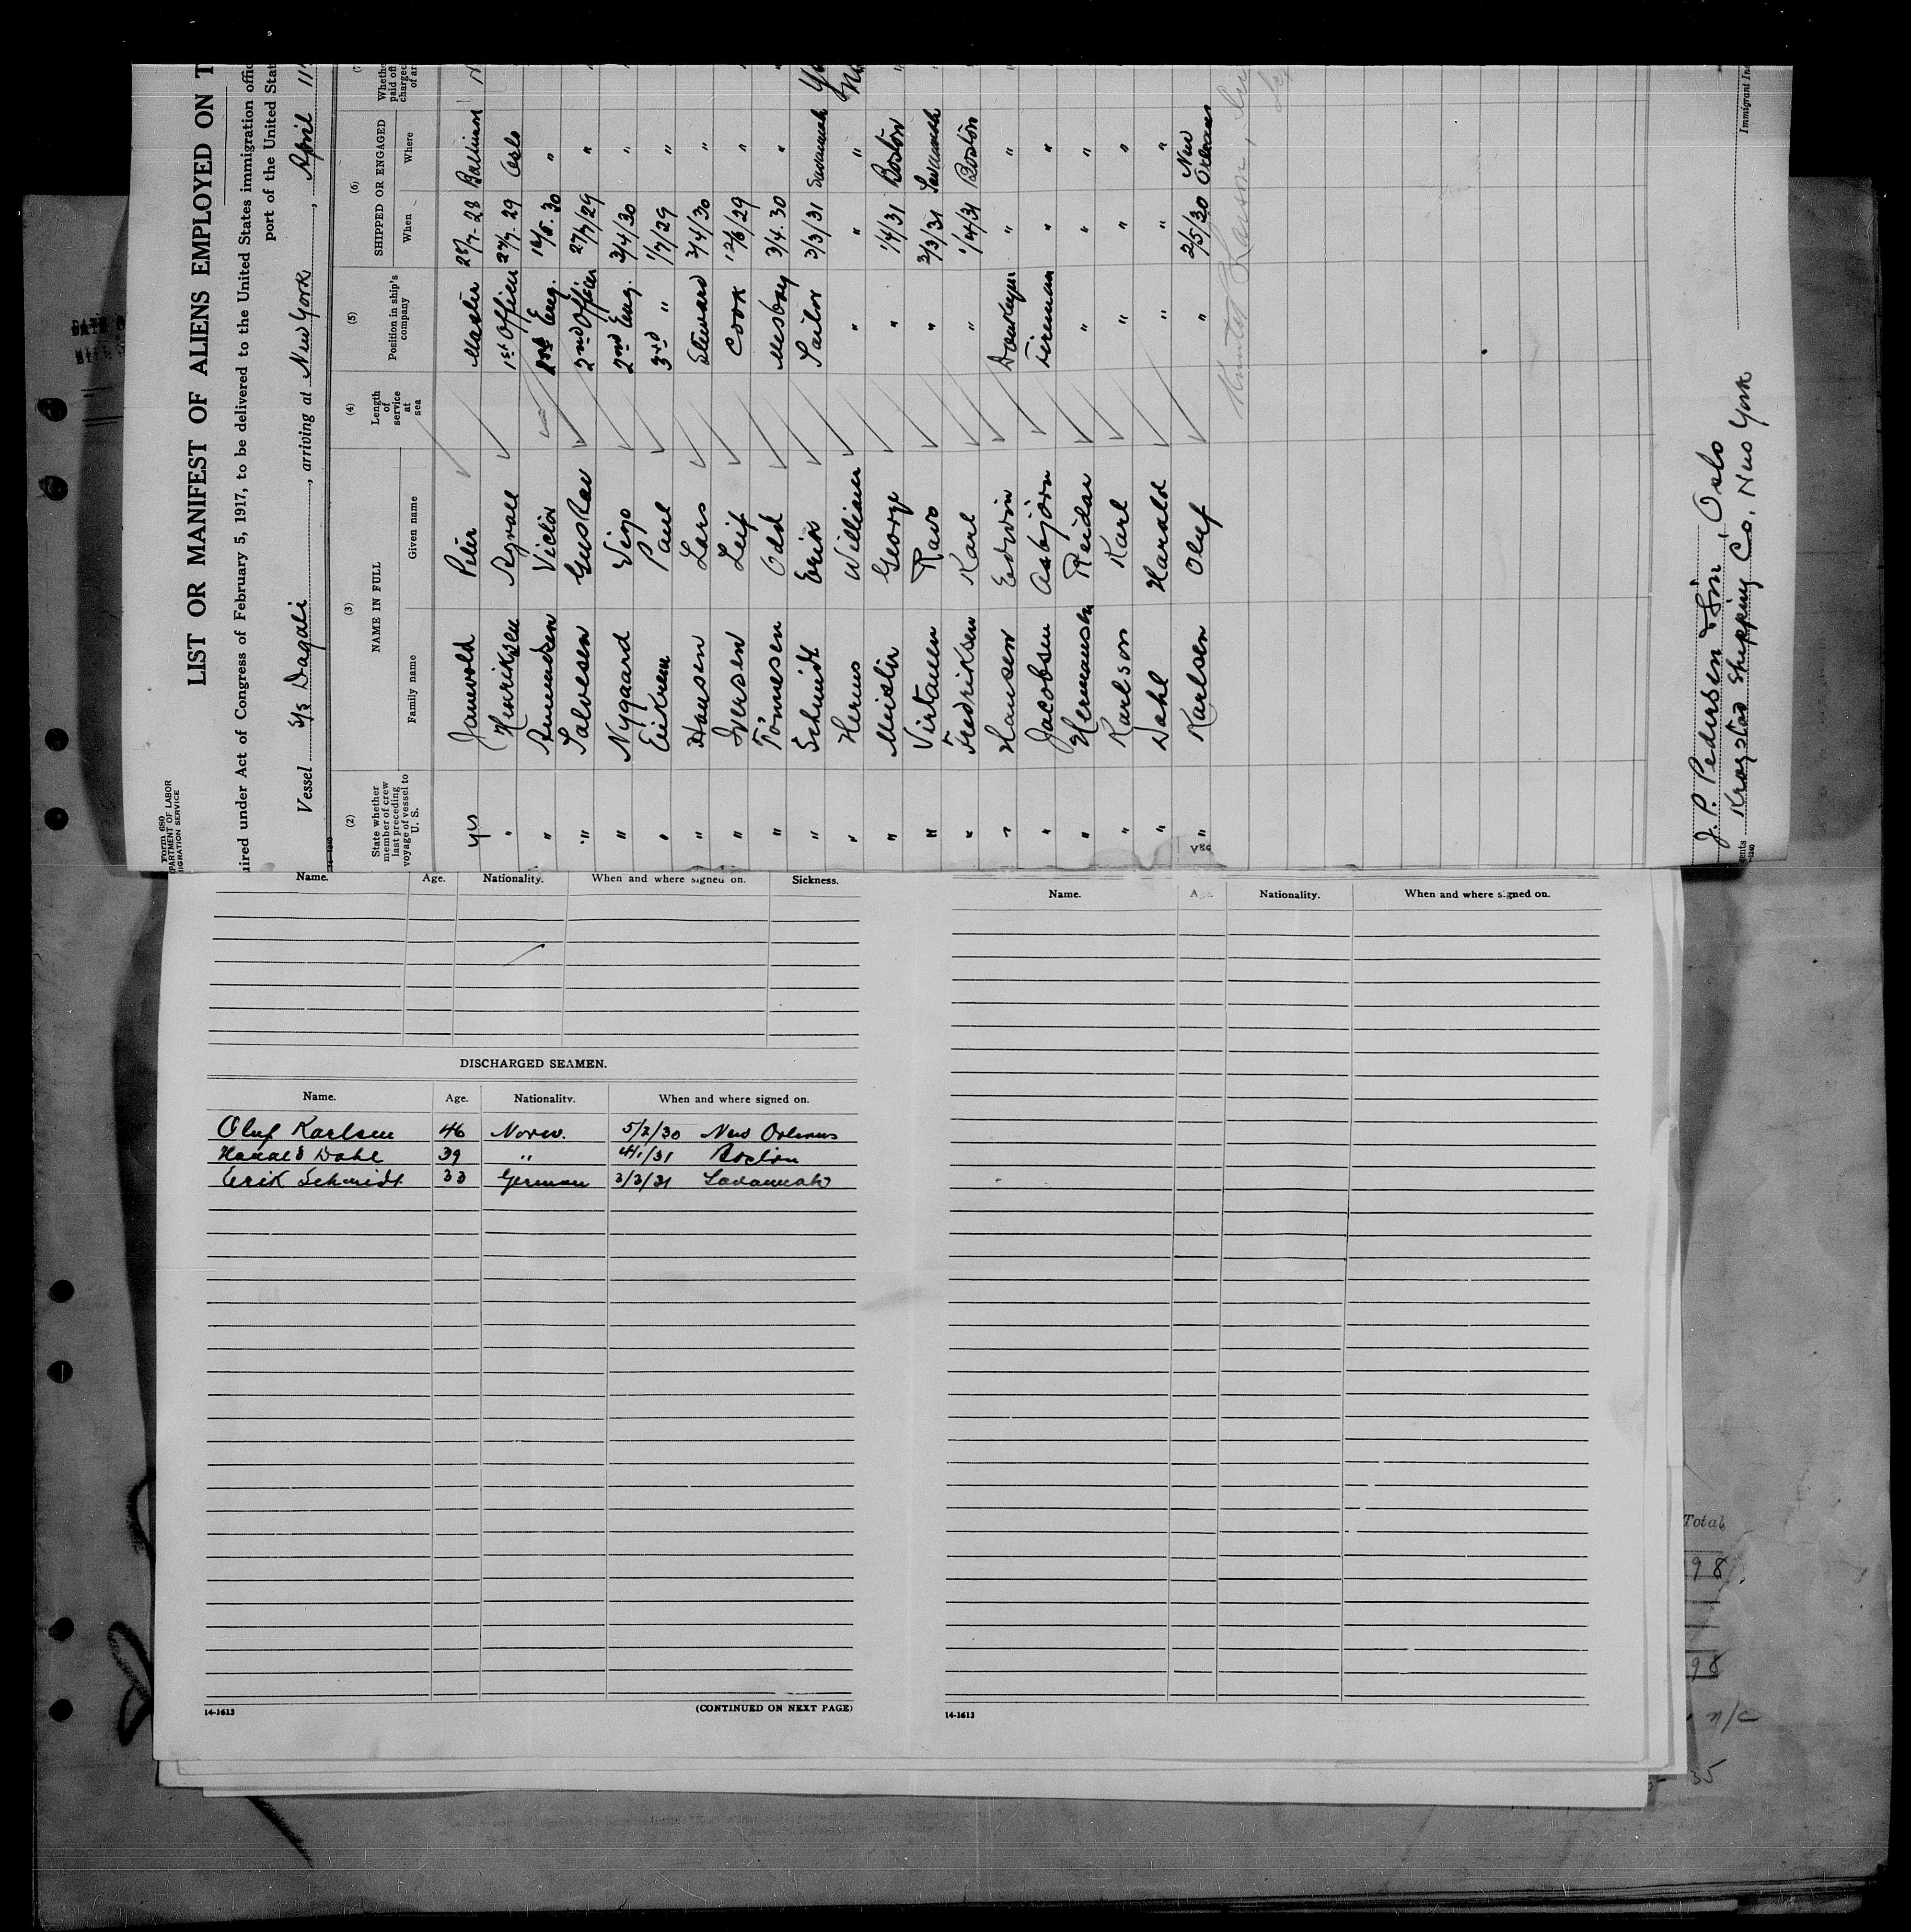 Form 680
LIST OR MANIFEST OF ALIENS EMPLOYED ON T
uired under Act of Congress of February 5, 1917, to be delivered to the United States immigration offic
port of the United Stat
Vessel S/S Dagali, arriving at New York, April 11
(2) (3) (4) (5) (6)
State whether member of crew last preceding voyage of vessel to U. S.
NAME IN FULL
Family name Given name
Length of service at sea
Position in ship's company
SHIPPED OR ENGAGED
When Where
yes Jamvold Peter Master 28/7-28
" Henriksen 1st Officer 27/7. 29 Oslo
" Amundsen Victor Eng. "
" Salvesen 2nd Officer 27/7/29 "
" Nygaard 2nd Eng. 3/4/30 "
" Eikrem Paul 3rd " 1/7/29 "
" Hansen Lars Steward 3/4/30 "
" Iversen Leif Cook "
" Tönnesen Odd Messboy 3/4. 30 "
" Schmidt Erik Sailor 3/3/31 Savannah
" William " " "
" George " 1/4/31 Boston
" Virtanen " 3/3/31 Savannah
" Fredriksen Karl " 1/4/31 Boston
" Hansen Edvin " "
" Jacobsen Asbjörn Fireman " "
" Hermansen Reidar " " "
" Karlson Karl " " "
" Dahl Harald " " "
" Karlsen Oluf " 2/5/30 New Orleans
J. P. Pedersen & Sön, Oslo
Kragstad Shipping Co. New York
Immigrant In
Name. Age. Nationality. When and where signed on. Sickness.
DISCHARGED SEAMEN.
Name. Age. Nationality. When and where signed on.
Oluf Karlsen 46 Norw. 5/2/30 New Orleans
Harald Dahl 39 " Boston
Erik Schmidt 33 German 3/3/31 Savannah
14-1613 (CONTINUED ON NEXT PAGE)
Name. Age. Nationality. When and where signed on.
14-1613
Total
98
98
n/c
35